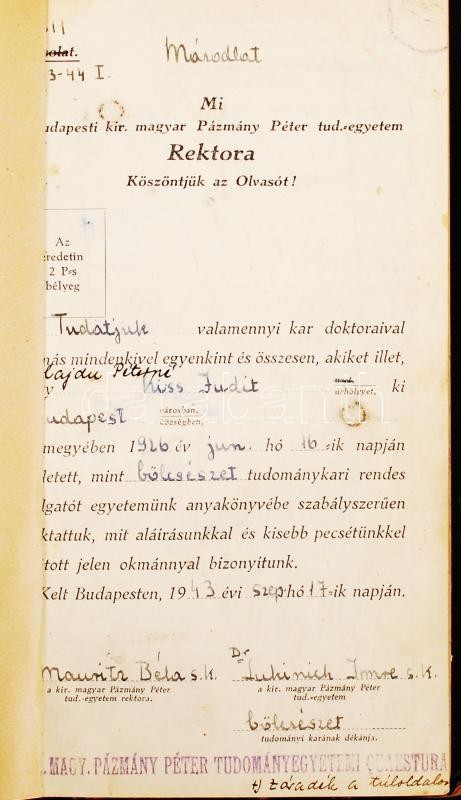 Másodlat
3-44 I.
Mi
udapesti kir. magyar Pázmány Péter tud.-egyetem
Rektora
Köszöntjük az Olvasót!
Az
eredetin
2 P-s
bélyeg
Tudatjuk valamennyi kar doktoraival
más mindenkivel egyenkint és összesen, akiket illet,
Hajdu Péterné
Kiss Judit úrhölgyet, ki
udapest városban,
községben,
megyében 1926 év jun. hó 16-ik napján
letett, mint bölcsészet tudománykari rendes
lgatót egyetemünk anyakönyvébe szabályszerűen
ktattuk, mit aláírásunkkal és kisebb pecsétünkkel
tott jelen okmánnyal bizonyítunk.
Kelt Budapesten, 1943 évi szep hó 17-ik napján.
Mauritz Béla s.k. Dr. Lukinich Imre s.k.
a kir. magyar Pázmány Péter a kir. magyar Pázmány Péter
tud.-egyetem rektora. tud.-egyetem
bölcsészet
tudományi karának dékánja.
. MAGY. PÁZMÁNY PÉTER TUDOMÁNYEGYETEMI QUAESTURA
+) záradék a túloldalon